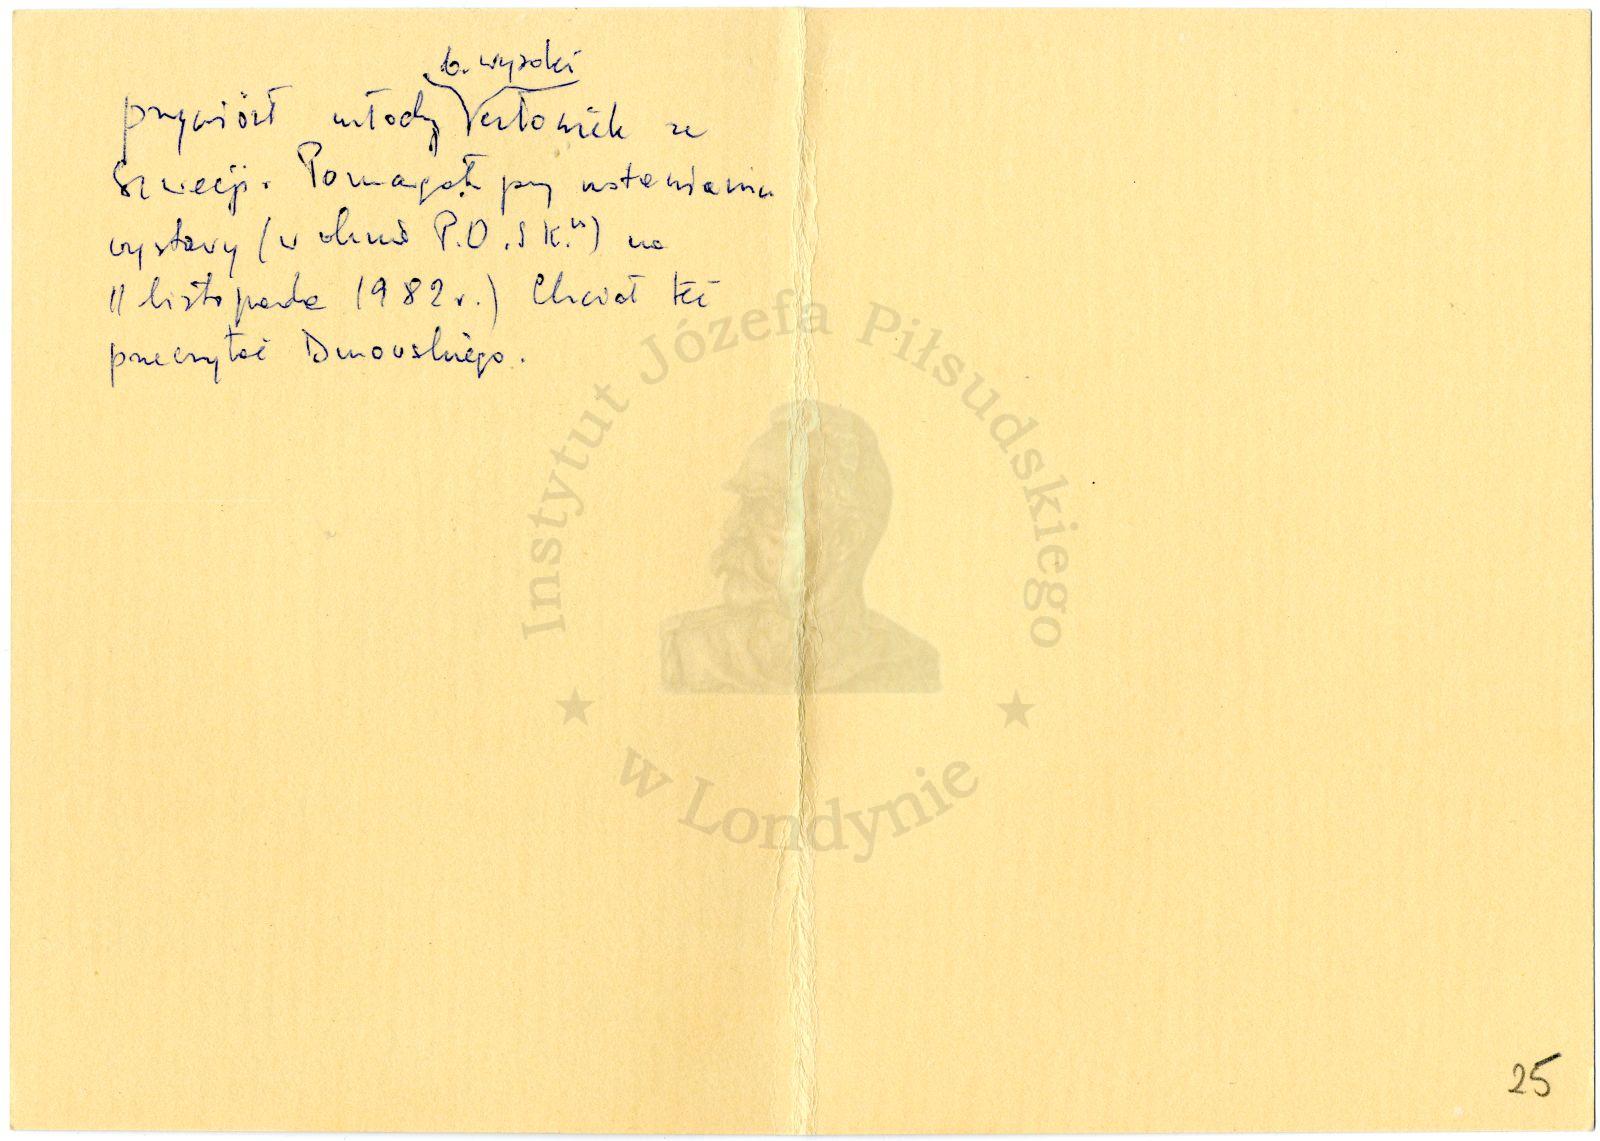 b. wysoki
przywiózł młody człowiek ze
Szwecji. Pomagał przy ustawianiu
wystawy (w oknie P.O.S K.") na
11 listopada 1982 r.) Chciał też
przeczytać Dmowskiego.
Instytut Józefa Piłsudskiego
w Londynie
25